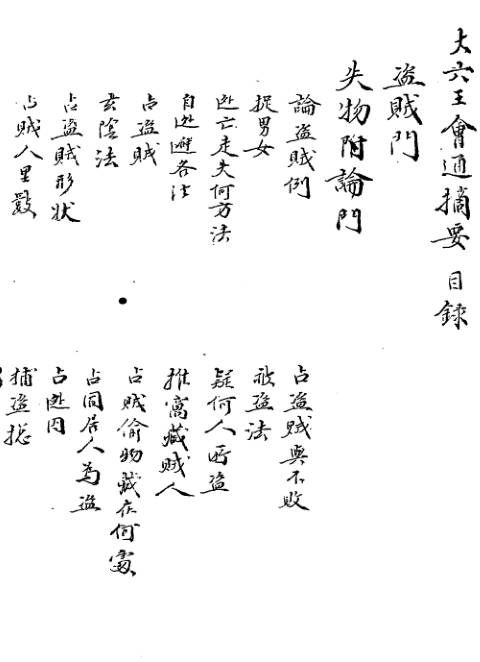 大六壬會通摘要 目録
盗賊門
失物附論門
論盗賊例
捉男女
迯亡走失何方法
自迯避各法
占盗賊
玄陰法
占盗賊形状
占賊人里數
占盗賊與不敗
被盗法
疑何人所盗
推窩藏賊人
占賊偷物藏在何處
占同居人為盗
占迯囚
捕盗